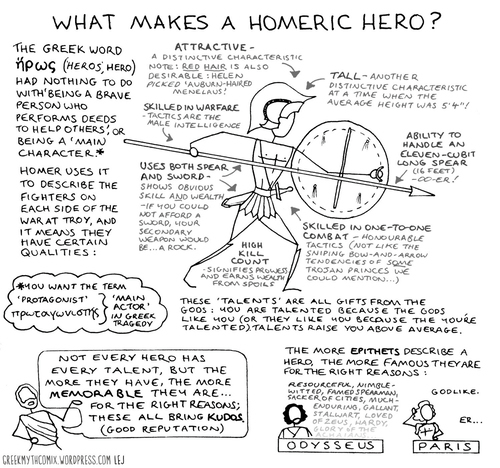 WHAT MAKES A HOMERIC HERO?
THE GREEK WORD
ἥρως (HEROS; HERO)
HAD NOTHING TO DO
WITH 'BEING A BRAVE
PERSON WHO
PERFORMS DEEDS
TO HELP OTHERS', OR
BEING A 'MAIN
CHARACTER.*
HOMER USES IT
TO DESCRIBE THE
FIGHTERS ON
EACH SIDE OF THE
WAR AT TROY, AND
IT MEANS THEY
HAVE CERTAIN
QUALITIES:
ATTRACTIVE-
A DISTINCTIVE CHARACTERISTIC
NOTE: RED HAIR IS ALSO
DESIRABLE: HELEN
PICKED 'AUBURN-HAIRED
MENELAUS'!
TALL-ANOTHER
DISTINCTIVE CHARACTERISTIC
AT A TIME WHEN THE
AVERAGE HEIGHT WAS 5'4"!
SKILLED IN WARFARE
-TACTICS ARE THE
MALE INTELLIGENCE
ABILITY TO
HANDLE AN
ELEVEN-CUBIT
LONG SPEAR
(16 FEET)
-OO-ER!
USES BOTH SPEAR
AND SWORD-
SHOWS OBVIOUS
SKILL AND WEALTH
-IF YOU COULD
NOT AFFORD A
SWORD, YOUR
SECONDARY
WEAPON WOULD
BE...A ROCK.
HIGH
KILL
COUNT
-SIGNIFIES PROWESS
AND EARNS WEALTH
FROM SPOILS
SKILLED IN ONE-TO-ONE
COMBAT - HONOURABLE
TACTICS (NOT LIKE THE
SNIPING BOW-AND-ARROW
TENDENCIES OF SOME
TROJAN PRINCES WE
COULD MENTION...)
*YOU WANT THE TERM
'PROTAGONIST'
πρωταγωνιστής
'MAIN
ACTOR'
IN GREEK
TRAGEDY
THESE 'TALENTS' ARE ALL GIFTS FROM THE
GODS: YOU ARE TALENTED BECAUSE THE GODS
LIKE YOU (OR THEY LIKE YOU BECAUSE THE YOU'RE
TALENTED). TALENTS RAISE YOU ABOVE AVERAGE.
NOT EVERY HERO HAS
EVERY TALENT, BUT THE
MORE THEY HAVE, THE MORE
MEMORABLE THEY ARE...
FOR THE RIGHT REASONS;
THESE ALL BRING KUDOS.
(GOOD REPUTATION)
THE MORE EPITHETS DESCRIBE A
HERO, THE MORE FAMOUS THEY ARE
FOR THE RIGHT REASONS:
RESOURCEFUL, NIMBLE-
WITTED, FAMED SPEARMAN,
SACKER OF CITIES, MUCH-
ENDURING, GALLANT,
STALWART, LOVED
OF ZEUS, HARDY,
GLORY OF THE
GODLIKE.
ER...
ODYSSEUS
PARIS
GREEKMYTHCOMIX.WORDPRESS.COM LEJ